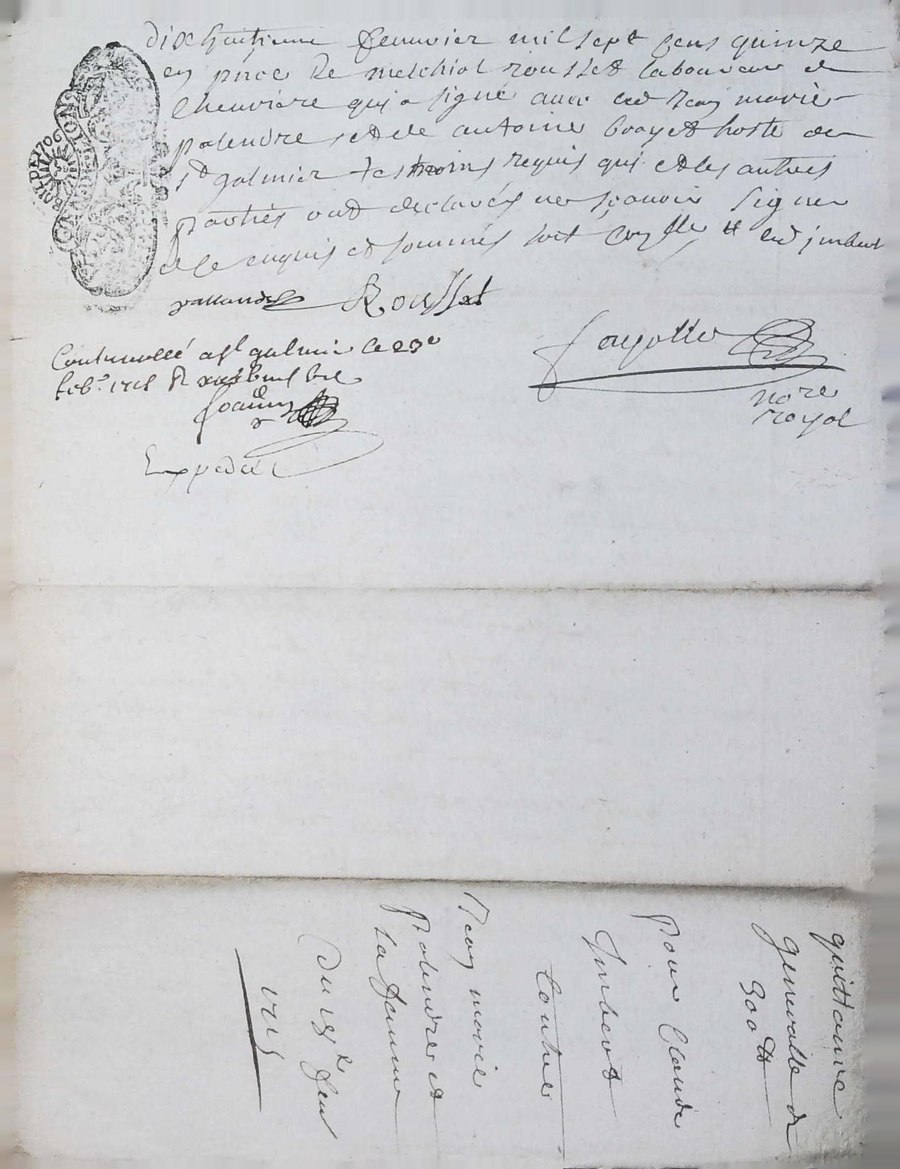 dix huitieme feuvrier mil sept cens quinze
en pnce de melchiol rousset laboureur de
Cheuriere qui a signé avec led Jean marie
palendre et de antoine boayet hoste de
st galmier tesmoins requis qui et les autres
parties ont declarés ne sçavoir signer
de ce enquis et sommés led imbert
pallandre Rousset
nore
royal
Controuollé a st galmier le 23e
feb. 1715 R
Expedié
quittance
generalle de
300 tt
pour Claude
Imbert
Contre
Jean marie
palendre et
sa femme
Du 18e feur
1715